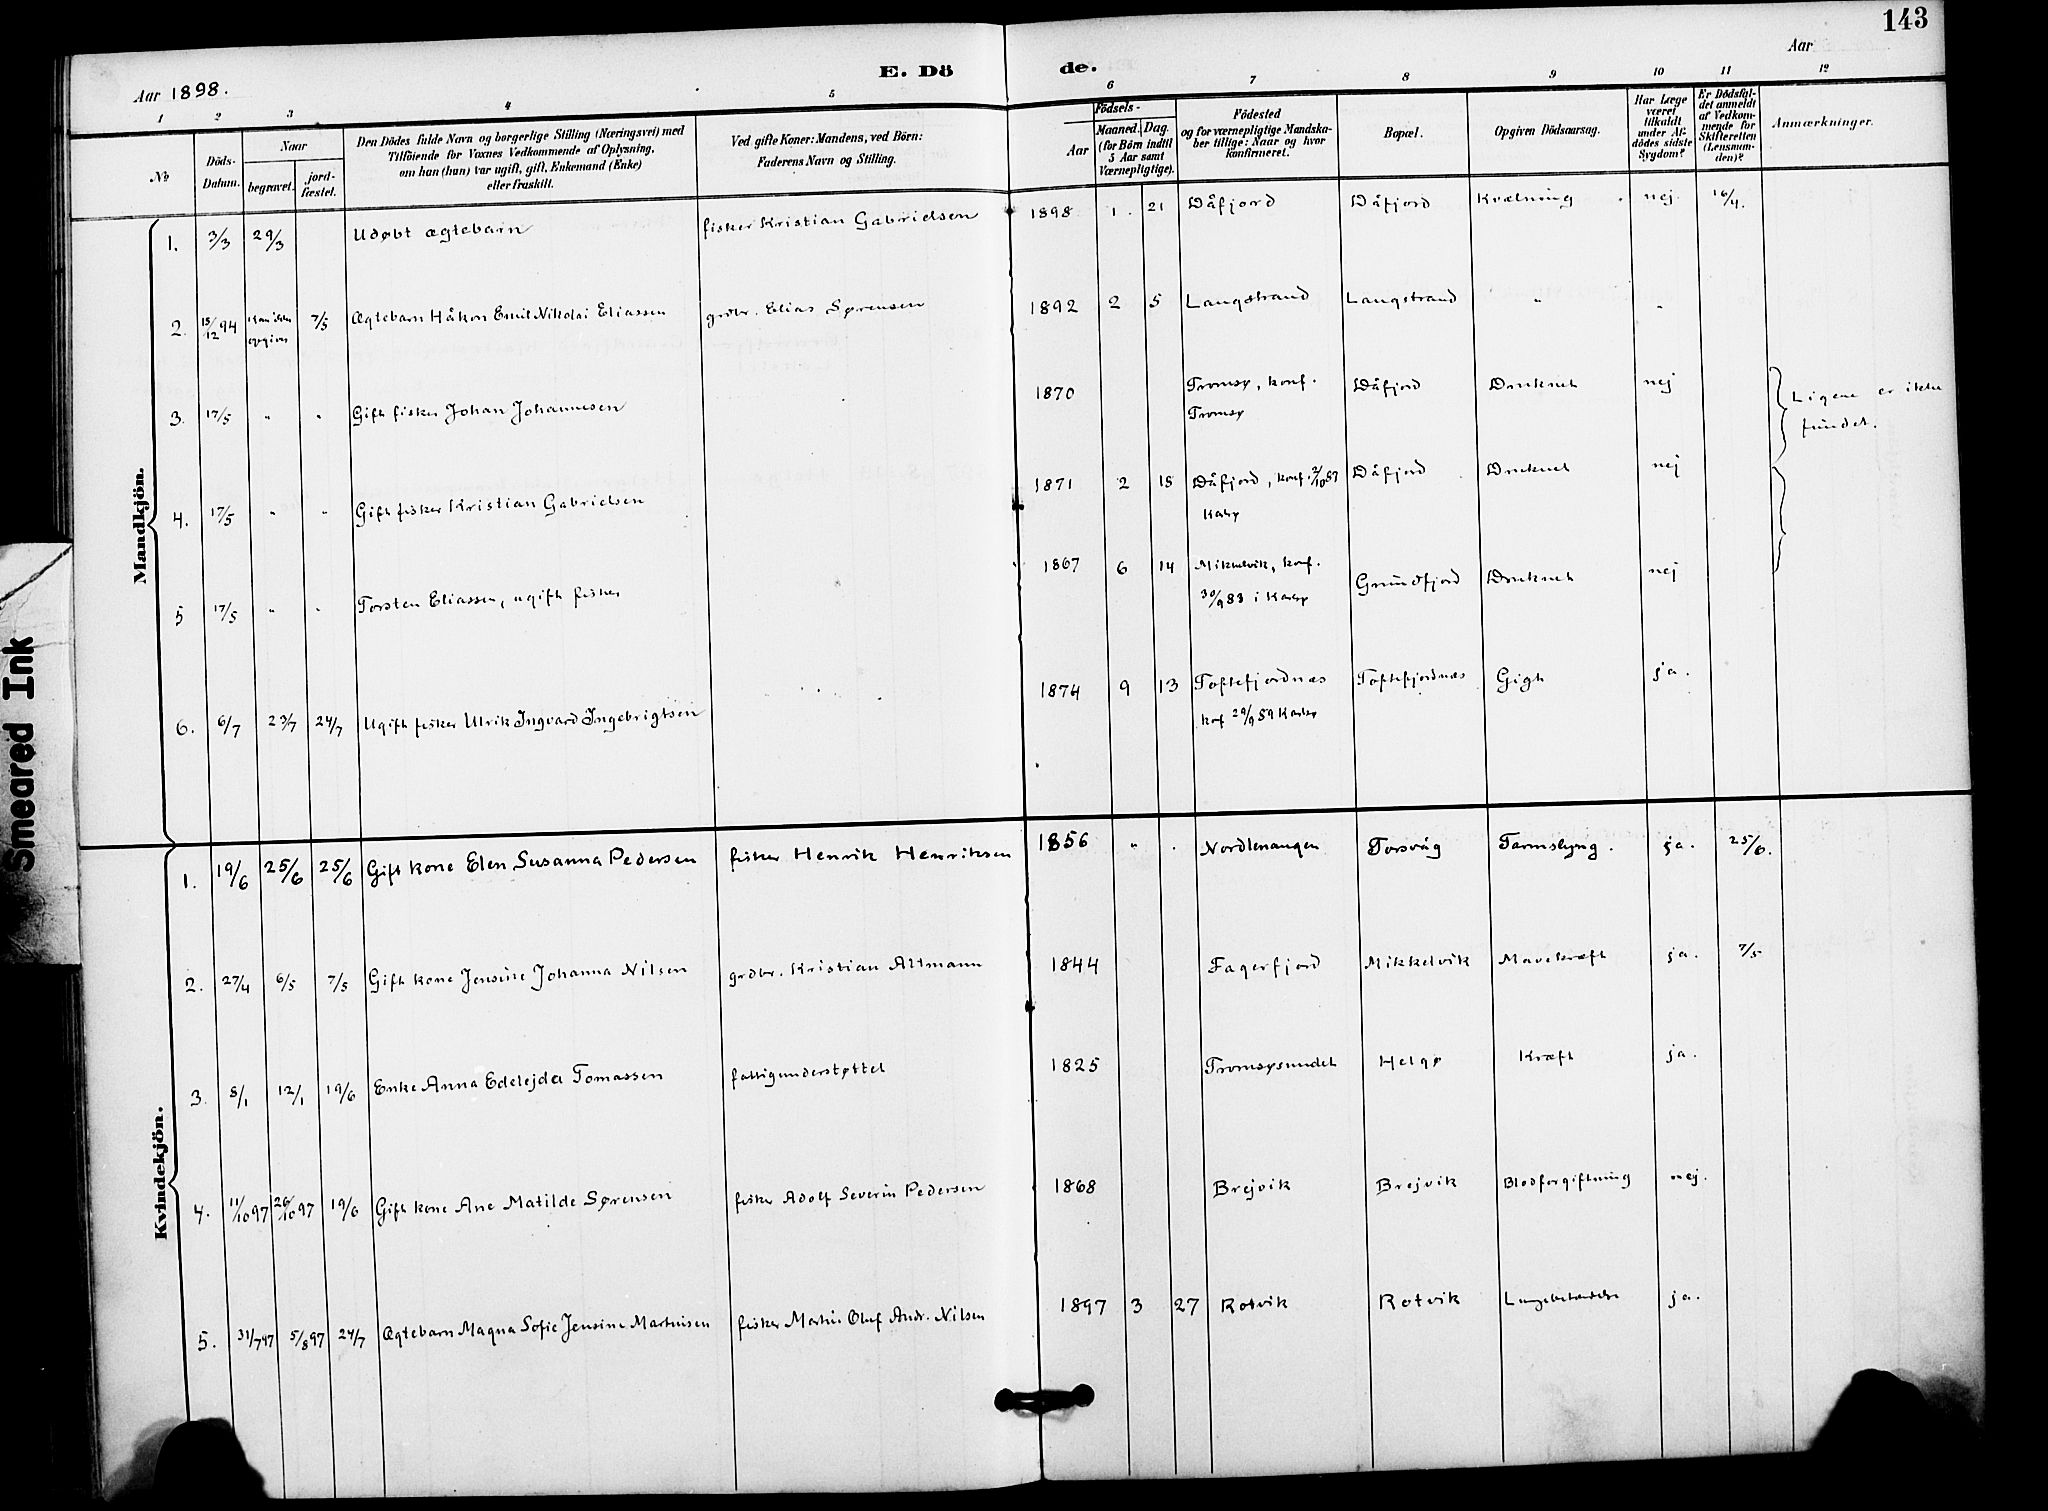 143
Aar 1898.
E. Dö de.
Aar
1 2 3 4 5 6 7 8 9 10 11 12
No
Döds-Datum.
Naar
begravet.
jord-fæstet.
Den Dödes fulde Navn og borgerlige Stilling (Næringsvei) med
Tilföiende for Voxnes Vedkommende af Oplysning,
om han (hun) var ugift, gift, Enkemand (Enke)
eller fraskilt.
Ved gifte Koner: Mandens, ved Börn:
Faderens Navn og Stilling.
Födsels-
Aar
Maaned. Dag.
(for Börn indtil
5 Aar samt
Værnepligtige).
Födested
og for værnepligtige Mandska-
ber tillige: Naar og hvor
konfirmeret.
Bopæl.
Opgiven Dödsaarsag.
Har Læge
været
tilkaldt
under Af-
dödes sidste
Sygdom?
Er Dödsfal-
det anmeldt
af Vedkom-
mende for
Skifteretten
(Lensman-
den)?
Anmærkninger.
Mandkjön.
1. 3/3 29/3 Udøbt ægtebarn fisker Kristian Gabrielsen 1898 1. 21 Dåfjord Dåfjord Kvælning nej. 16/4.
2. 15/12 94 Kan ikke opgives 7/5 Ægtebarn Håkon Emil Nikolai Eliassen grdbr. Elias Sørensen 1892 2 5 Langstrand Langstrand " "
3. 17/5 " " Gift fisker Johan Johannesen 1870 Tromsø, konf. Tromsø Dåfjord Druknet nej
Ligene er ikke
fundet.
4. 17/5 " " Gift fisker Kristian Gabrielsen 1871 2 15 Dåfjord, konf. 2/10 87 Karlsø Dåfjord Druknet nej
5 17/5 " " Torsten Eliassen, ugift fisker 1867 6 14 Mikkelvik, konf. 30/9 83 i Karlsø Grundfjord Druknet nej
6. 6/7 23/7 24/7 Ugift fisker Ulrik Ingvard Ingebrigtsen 1874 9 13 Toftefjordnæs konf 29/9 59 Karlsø Toftefjordnæs Gigt ja.
Kvindekjön.
1. 19/6 25/6 25/6 Gift kone Elen Susanna Pedersen fisker Henrik Henriksen 1856 " . Nordlenangen Torsvåg Tarmslyng. ja. 25/6.
2. 27/4 6/5 7/5 Gift kone Jensine Johanna Nilsen grdbr. Kristian Altmann 1844 Fagerfjord Mikkelvik Mavekræft ja. 7/5
3. 8/1 12/1 19/6 Enke Anna Edelejda Tomassen fattigunderstøttet 1825 Tromsøsundet Helgø Kræft ja.
4. 11/10 97 26/10 97 19/6 Gift kone Ane Matilde Sørensen fisker Adolf Severin Pedersen 1868 Brejvik Brejvik Blodforgiftning nej.
5. 31/7 97 5/8 97 24/7 Ægtebarn Magna Sofie Jensine Martinsen fisker Martin Oluf Andr. Nilsen 1897 3 27 Rotvik Rotvik Lungebetændelse ja.
Smeared Ink